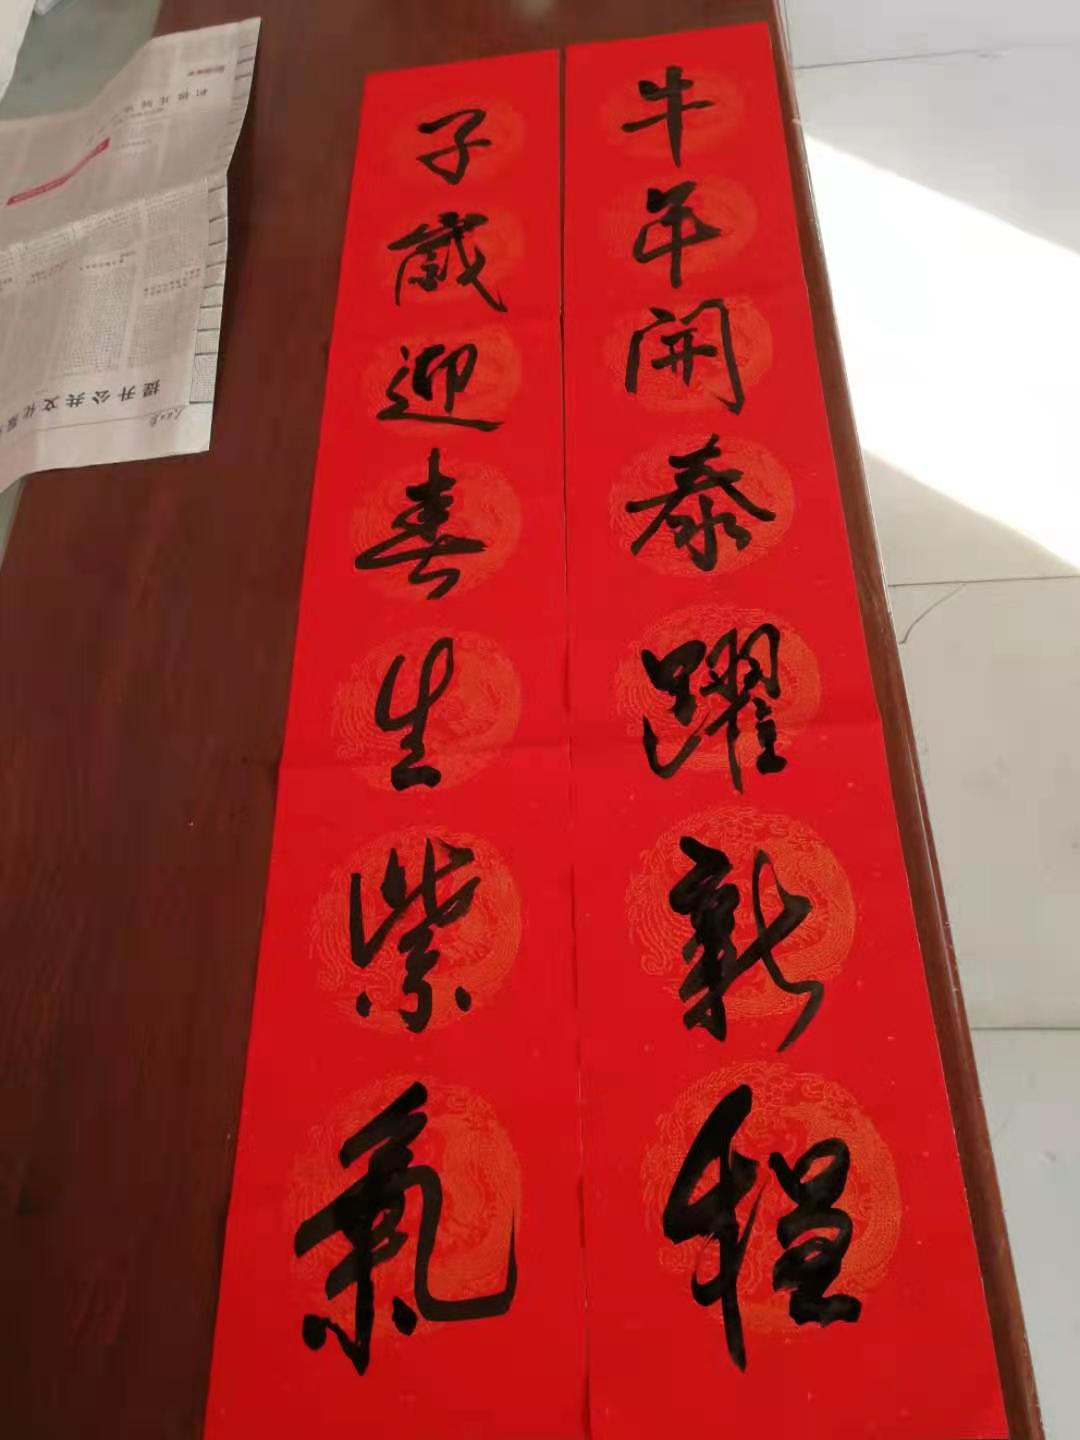 牛年開泰躍新程
子歲迎春生紫氣
提升公共文化服